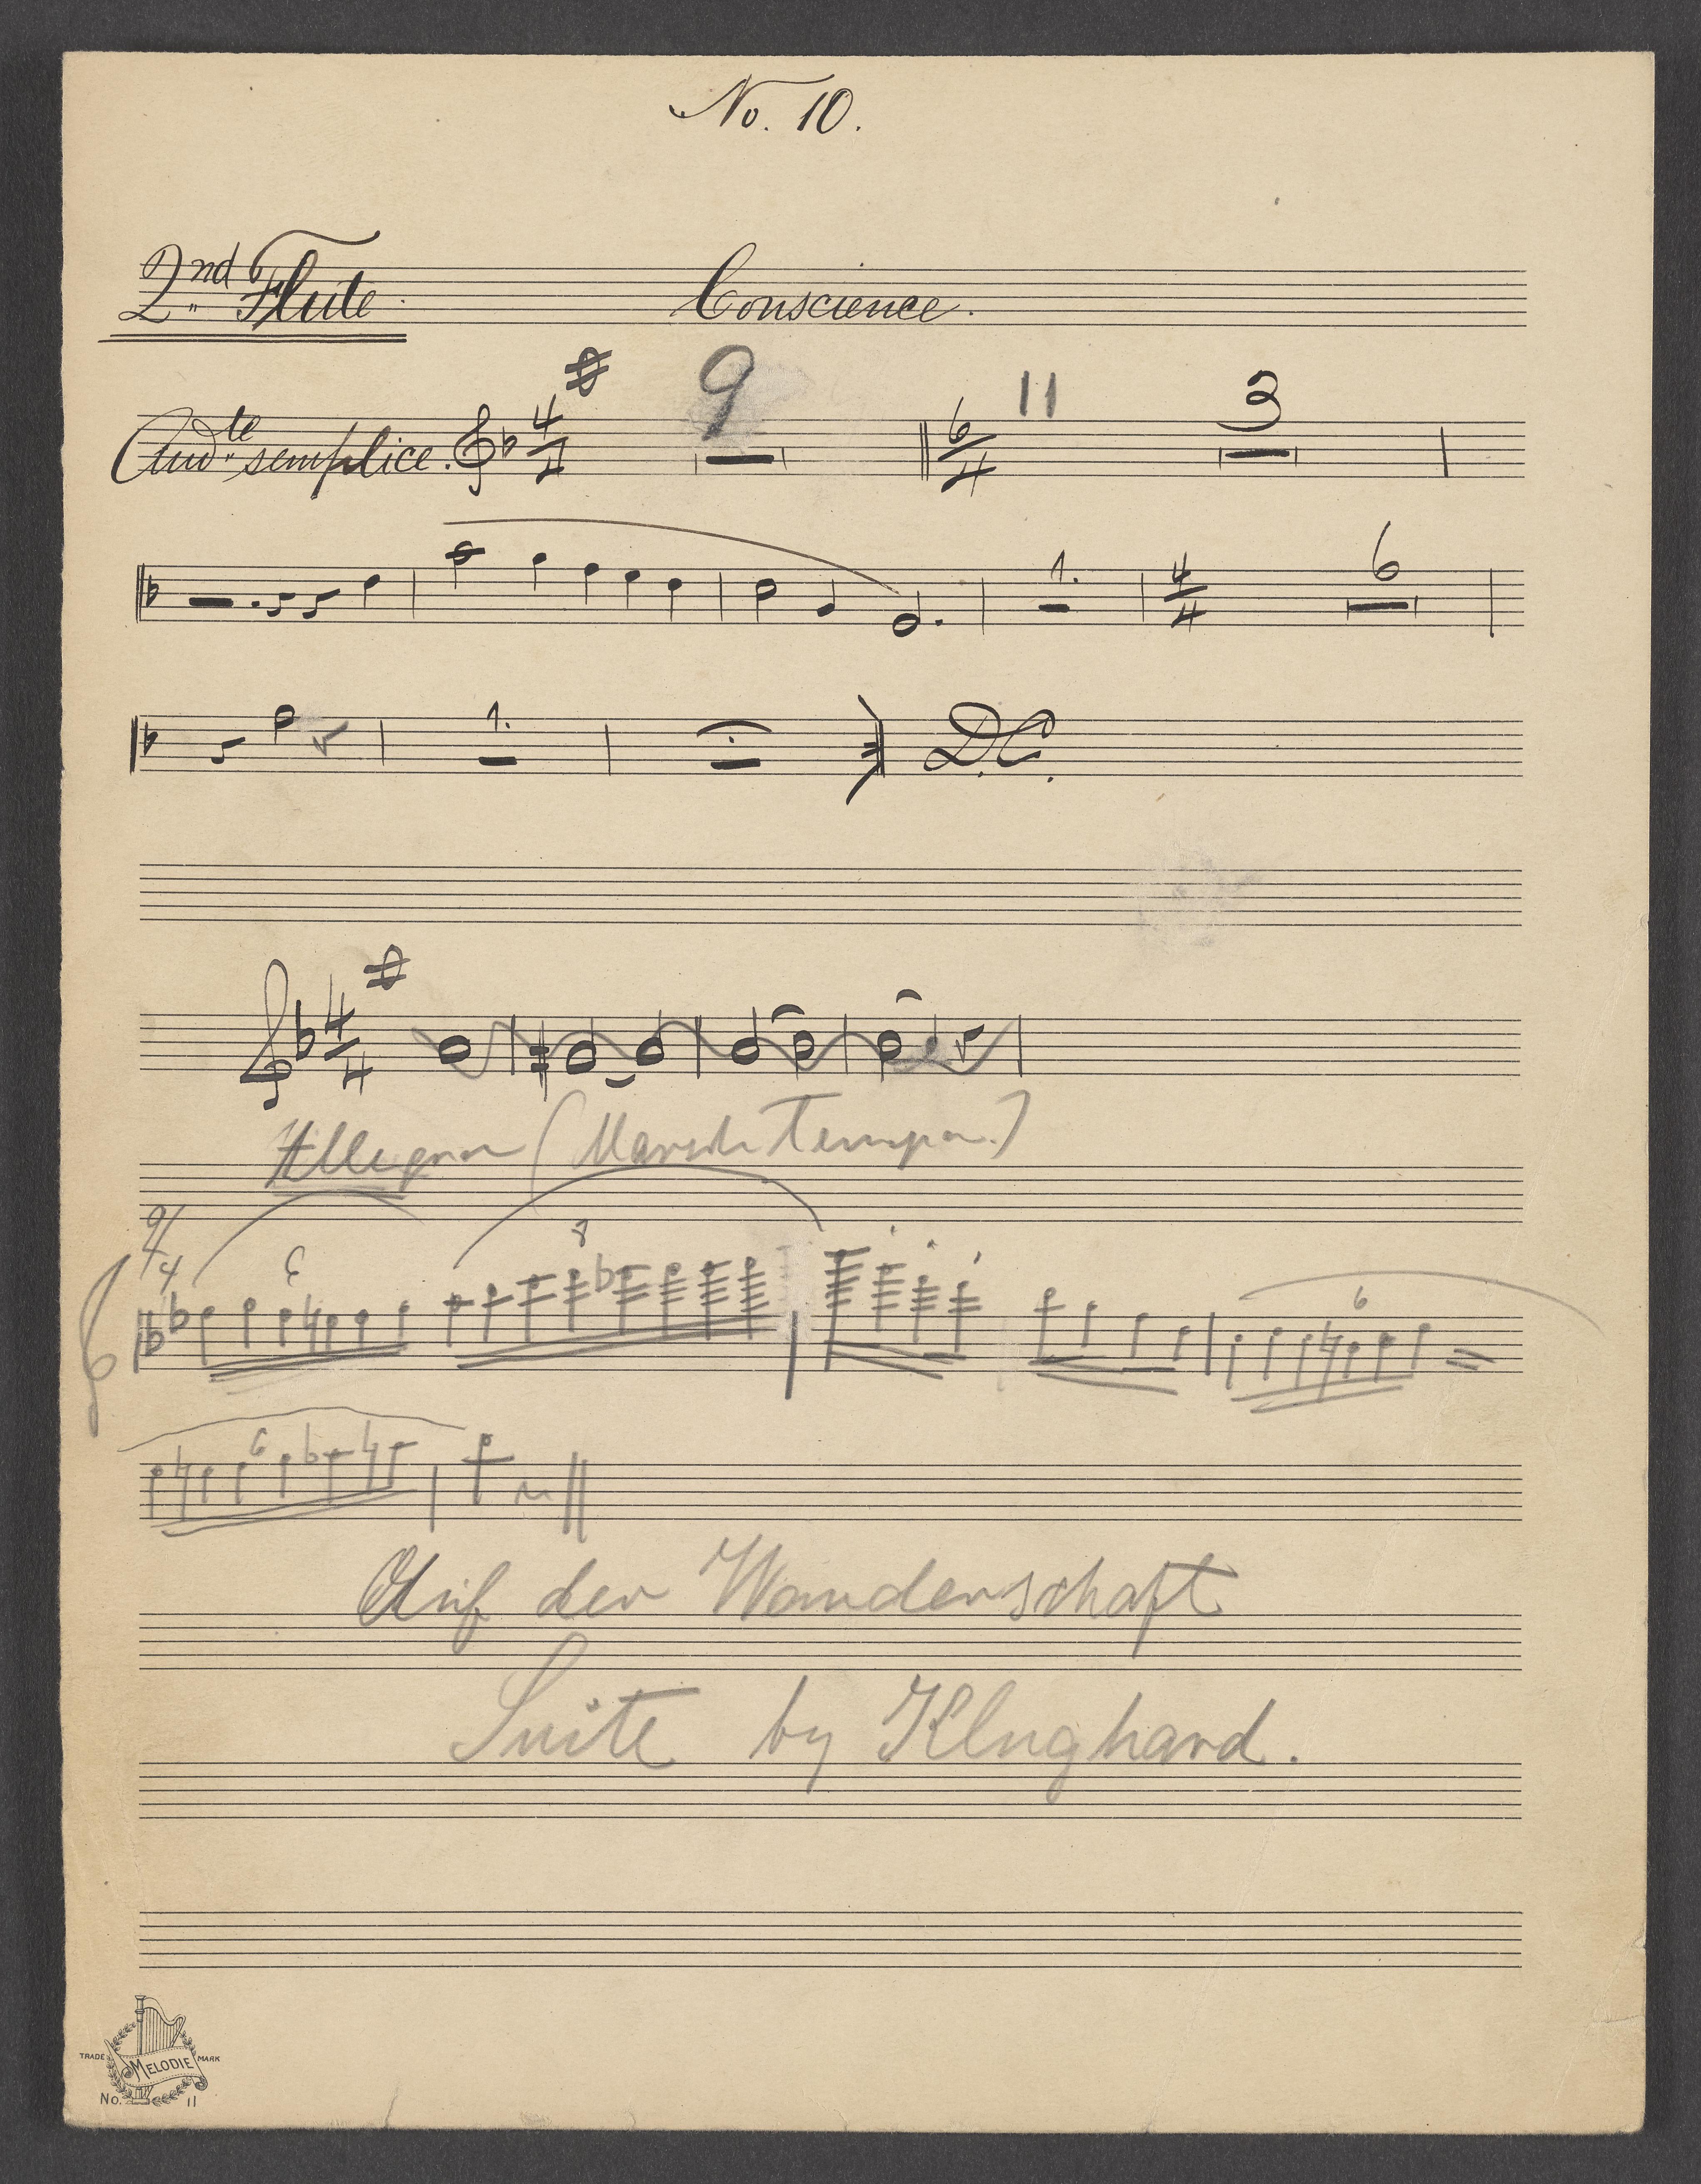 No. 10.
2nd Flute. Conscience.
9 11 3
Andte semplice. 4/4 6/4
1. 4/4 6
1. D.C.
4/4
Allegro (Marsch Tempo.)
6 8 6
6
Auf der Wanderschaft
Suite by Klughard.
TRADE MELODIE MARK
No. 11